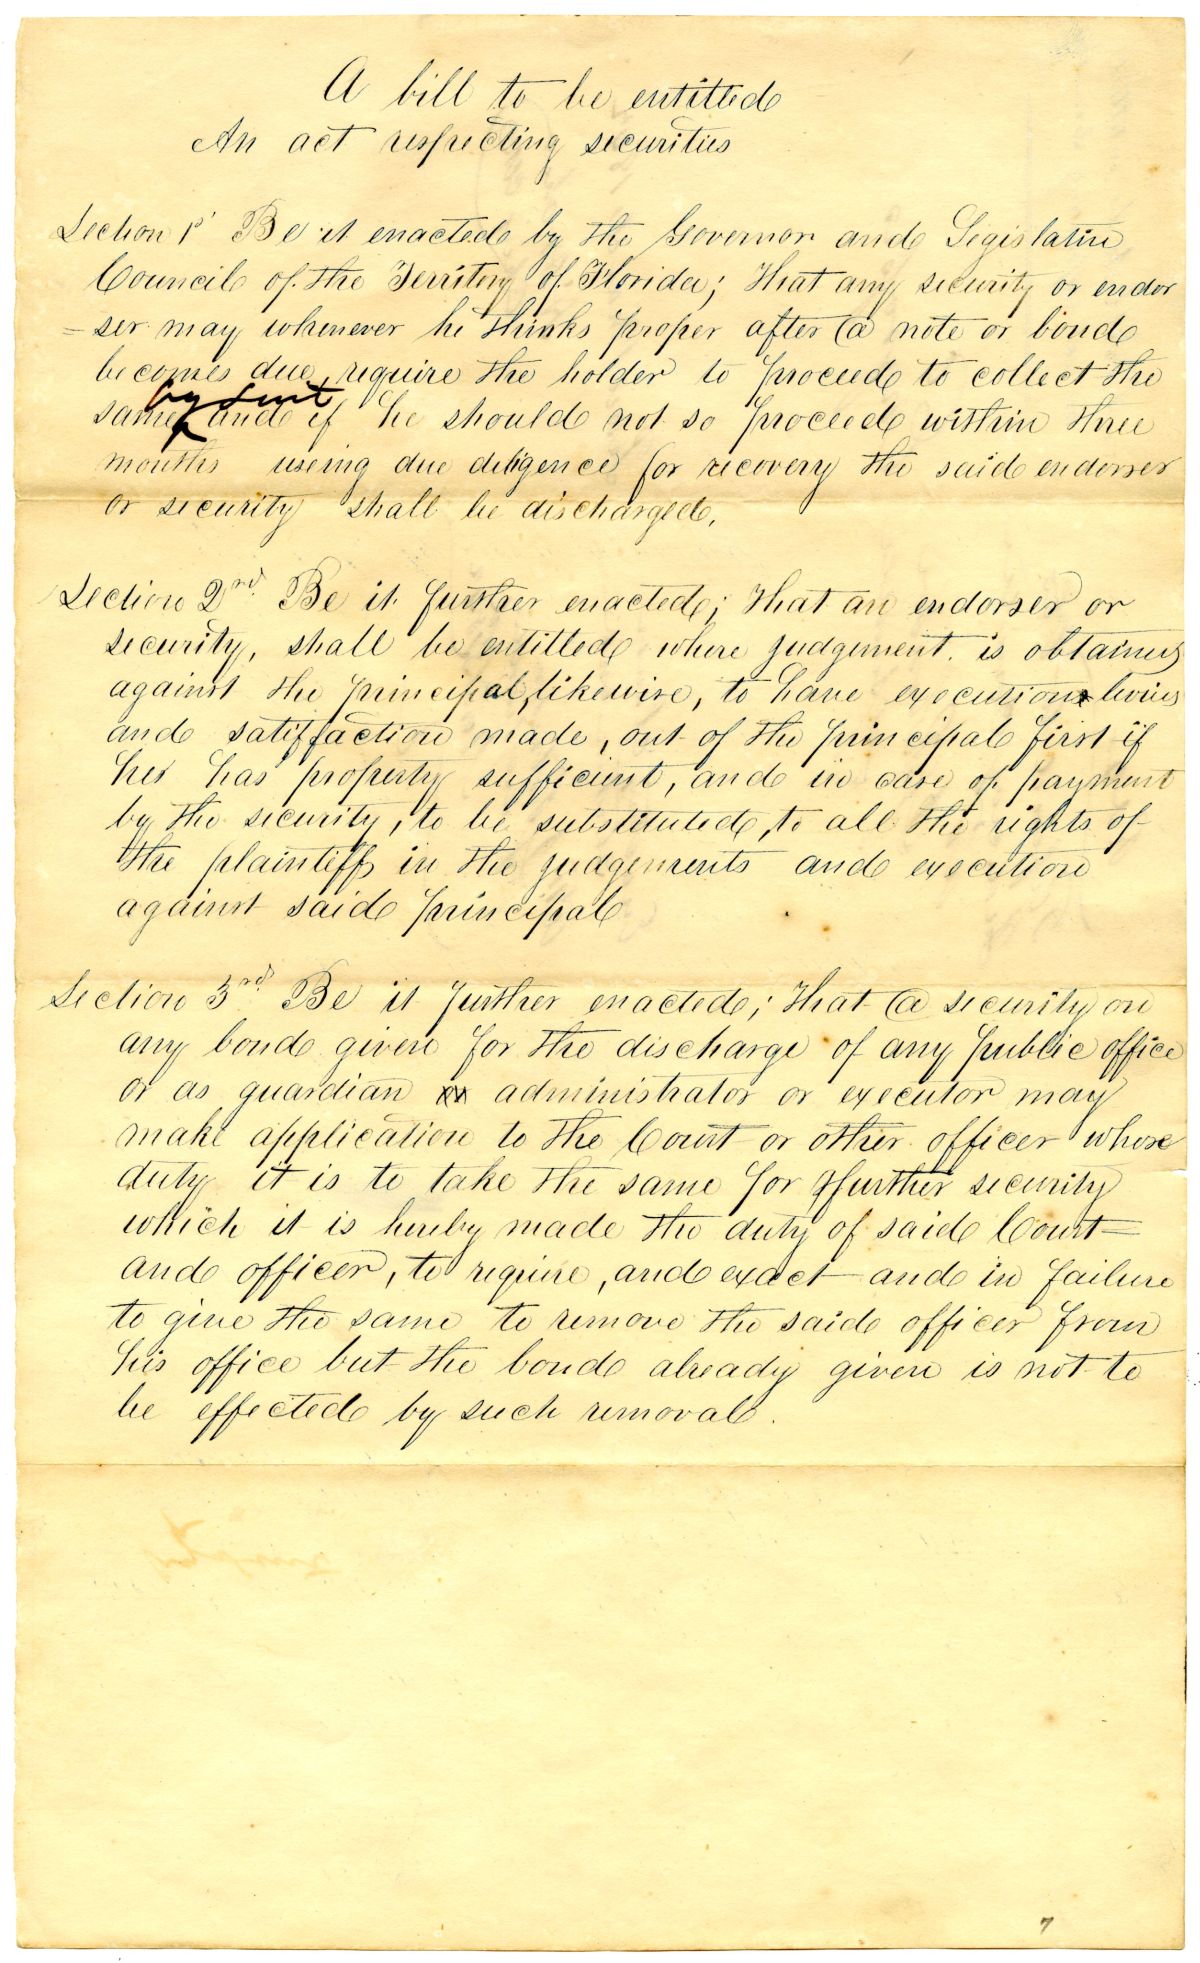 A bill to be entitled
An act respecting securities
Section 1st Be it enacted by the Governor and Legislative
Council of the Territory of Florida; That any security or endor
=ser may whenever he thinks proper after a note or bond
becomes due, require the holder to proceed to collect the
by suit
same, and if he should not so proceed within three
months useing due diligence for recovery the said endorser
or security shall be discharged,
Section 2nd. Be it further enacted; That an endorser or
security, shall be entitled where judgement is obtained
against the principal, likewise, to have execution levied
and satisfaction made, out of the principal first if
he has property sufficient, and in case of payment
by the security, to be substituted, to all the rights of
the plaintiff in the judgements and execution
against said principal
Section 3rd. Be it further enacted; That a security on
any bond given for the discharge of any public office
or as guardian or administrator or executor may
make application to the Court or other officer whose
duty it is to take the same for further security
which it is hereby made the duty of said Court
and officer, to require, and exact and in failure
to give the same to remove the said officer from
his office but the bond already given is not to
be effected by such removal.
7